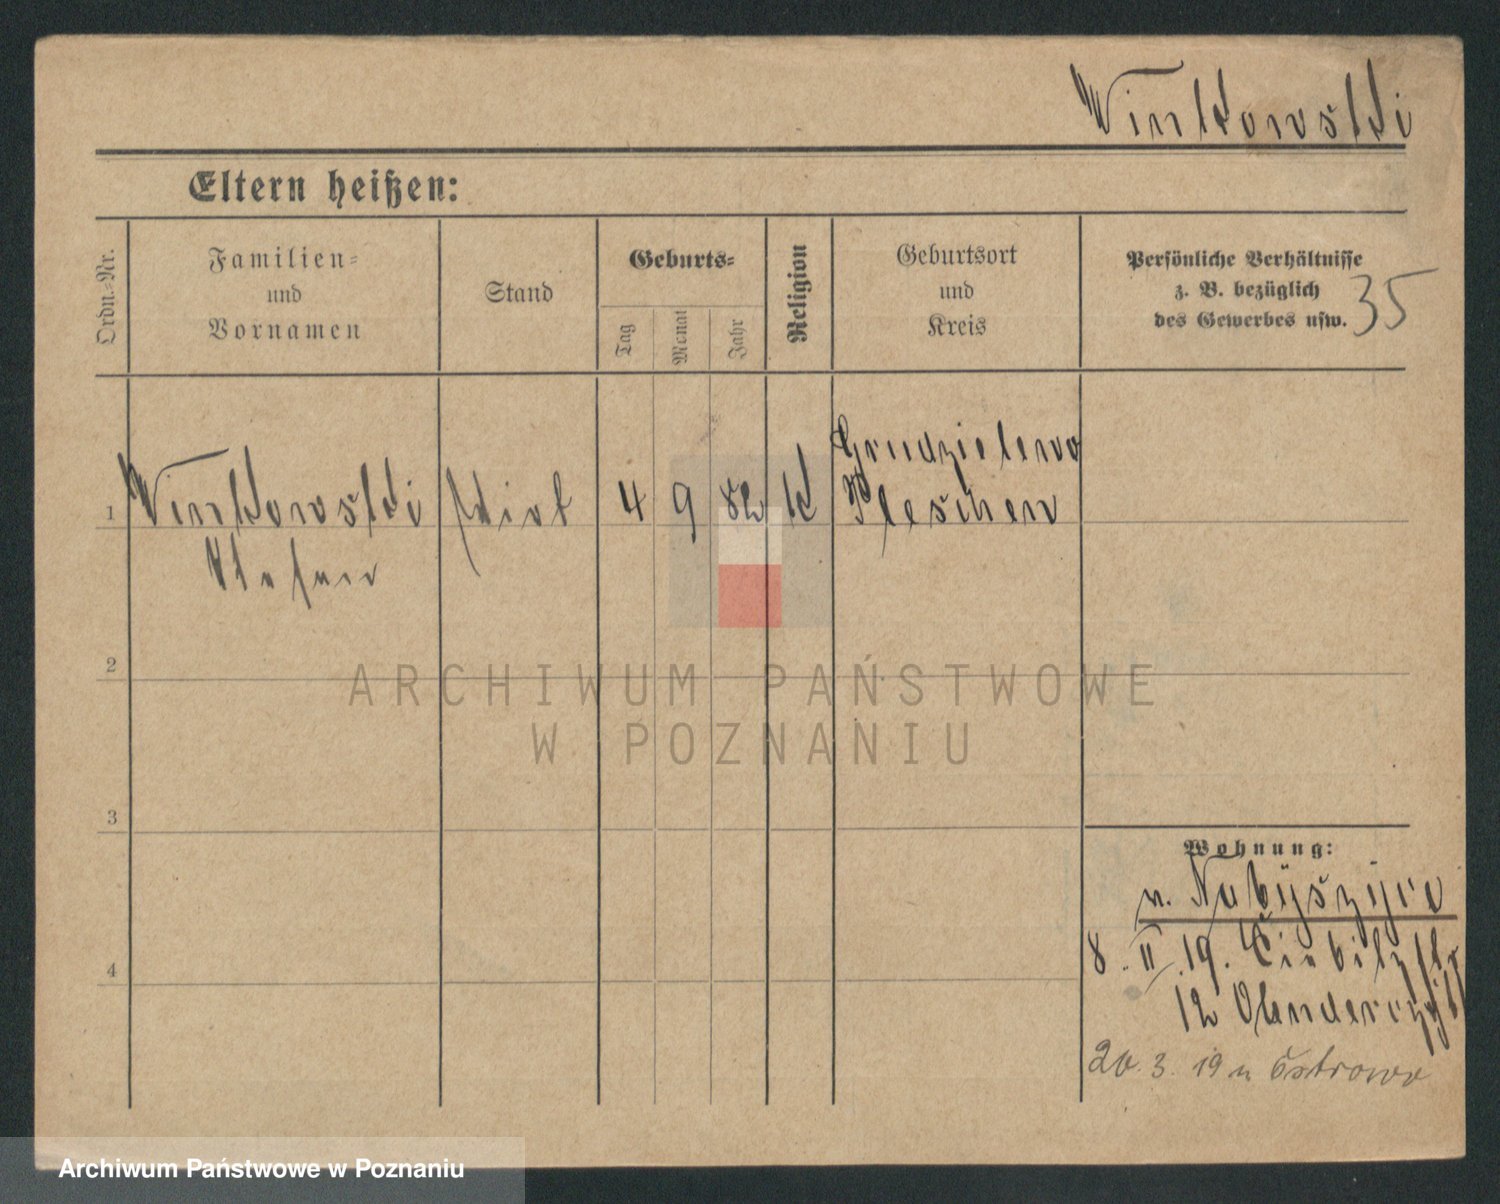 Winkowski
Eltern heißen:
Ordn.-Nr.
Familien-
und
Vornamen
Stand
Geburts-
Tag
Monat
Jahr
Religion
Geburtsort
und
Kreis
Persönliche Verhältnisse
z. B. bezüglich
des Gewerbes usw.
35
1
Winkowski
Stefan
4
9
82
k
Grudzielewo
Pleschen
2
3
4
Wohnung:
n.
8. II. 19.
12
20. 3. 19 n Ostrowo
ARCHIWUM PAŃSTWOWE
W POZNANIU
Archiwum Państwowe w Poznaniu